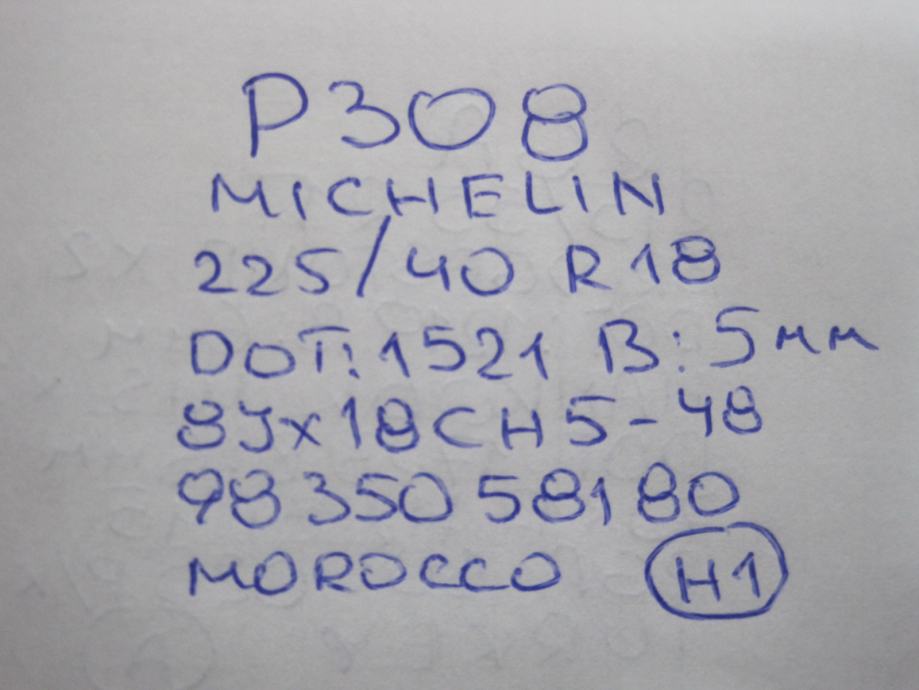 P308
MICHELIN
225/40 R18
DOT:1521 B:5мм
8Jx18CH5-48
9835058180
MOROCCO H1